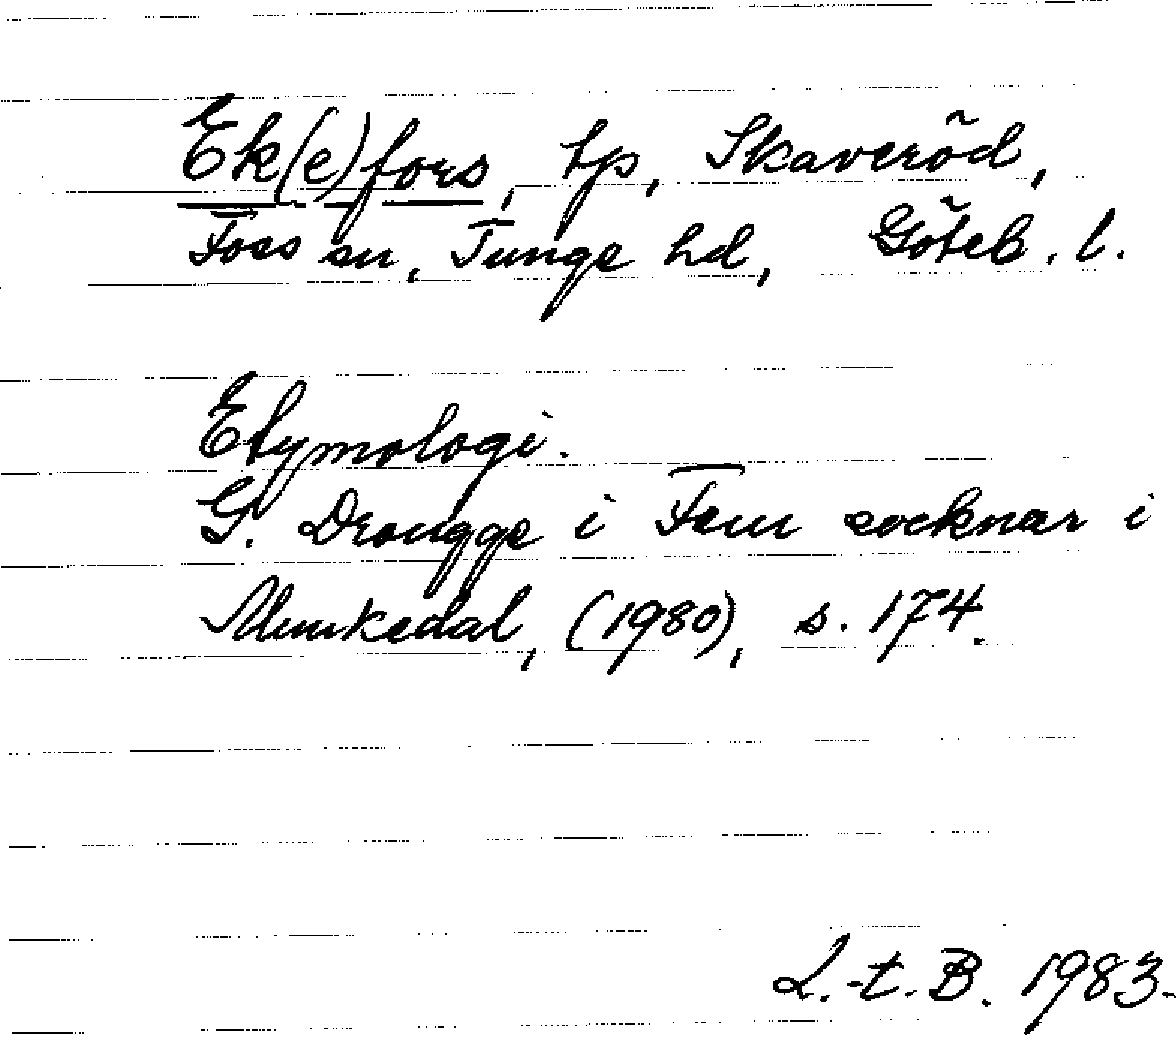 Ek(e)fors, tp, Skaveröd,
Foss sn, Tunge hd, Göteb. l.
Etymologi.
G. Drougge i Fem socknar i
Munkedal, (1980), s. 174.
L.-t. B. 1983.